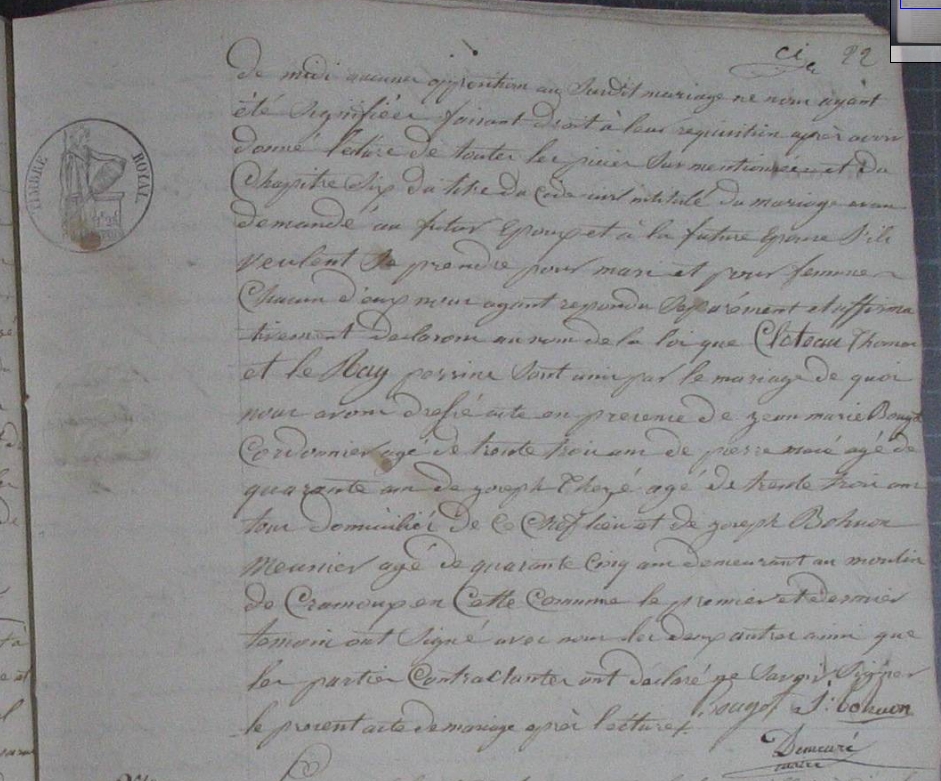 22
TIMBRE ROYAL
de midi aucune opposition au Susdit mariage ne nous ayant
été Signifiée faisant droit à leur requisition après avoir
donné lecture de toutes les pieces Sus mentionnées et du
Chapitre Six du titre du Code civil intitulé du mariage avons
demandé au futur Epoux et à la future Epouse S'ils
veulent Se prendre pour mari et pour femme
Chacun d'eux nous ayant repondu Separément et affirma
tivement declarons au nom de la loi que Cloteau Thomas
et le Ray perrine Sont unis par le mariage de quoi
nous avons dressé acte en presence de jean marie Bougot
Cordonnier agé de trente trois ans de pierre agé de
quarante ans de joseph agé de trente trois ans
tous domiciliés de Ce Chef lieu et de joseph Bohuon
Meunier agé de quarante Cinq ans demeurant au moulin
de en Cette Commune le premier et dernier
temoin ont Signé avec nous les deux autres ainsi que
les parties Contractantes ont déclaré ne Savoir Signer
le present acte de mariage après lecture
Bougot J: bohuon